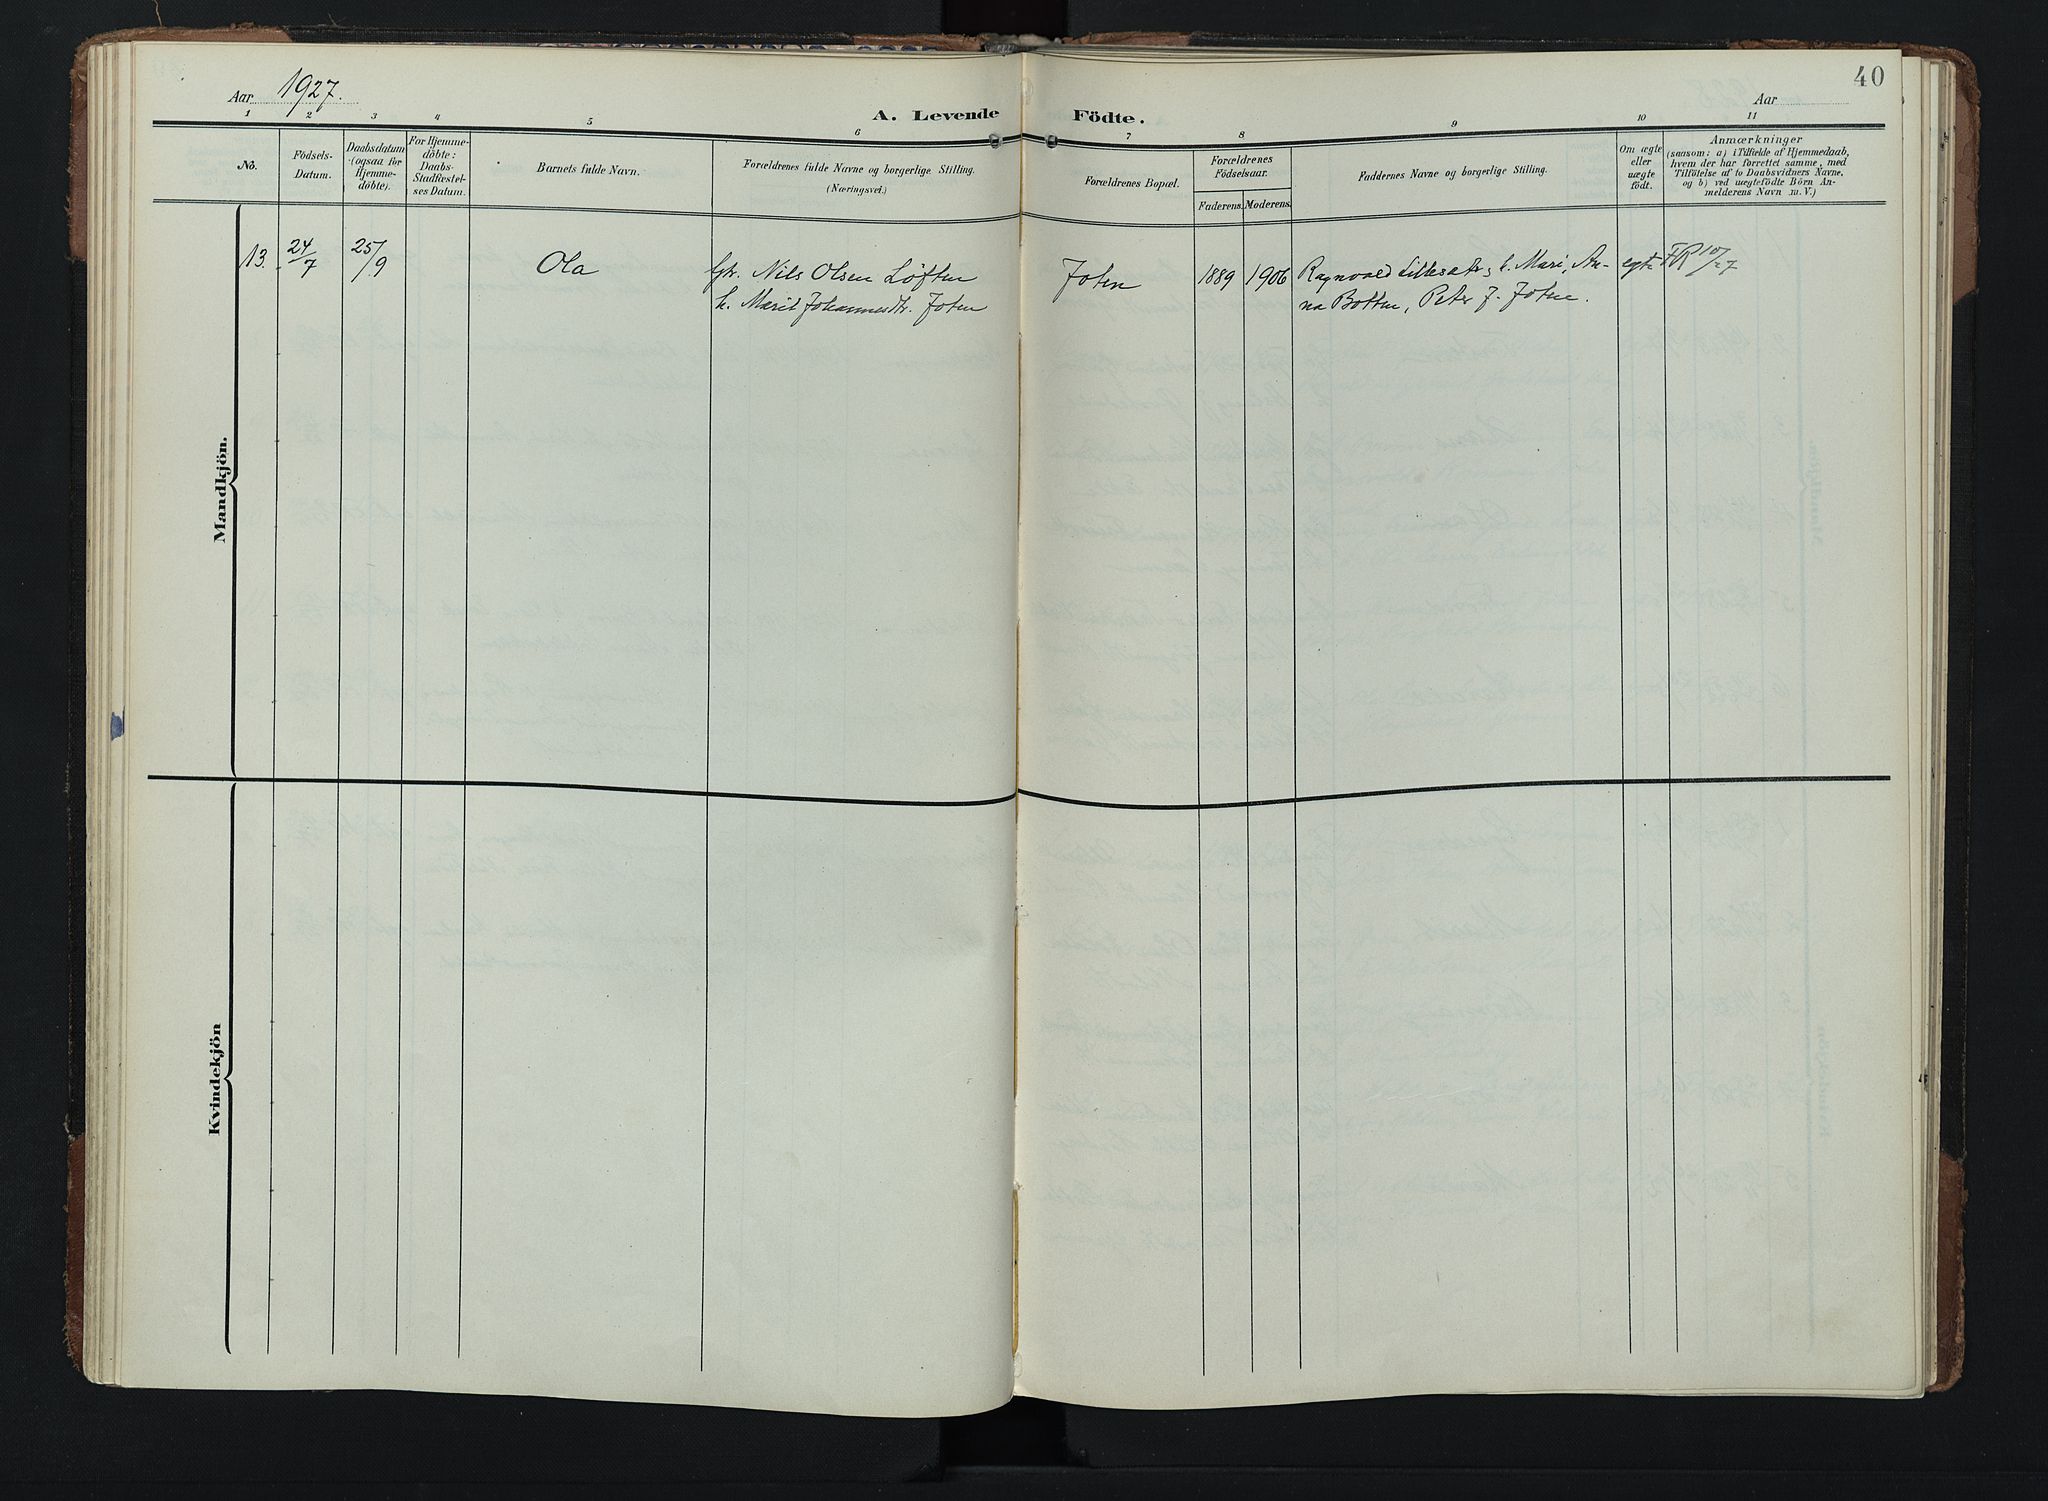 40
Aar 1927.
A. Levende Födte.
Aar
1 2 3 4 5 6 7 8 9 10 11
No.
Födsels-
Datum.
Daabsdatum
(ogsaa for
Hjemme-
døbte).
For Hjemme-
døbte:
Daabs-
Stadfæstel-
ses Datum.
Barnets fulde Navn.
Forældrenes fulde Navne og borgerlige Stilling.
(Næringsvei.)
Forældrenes Bopæl.
Forældrenes
Födselsaar.
Faderens. Moderens.
Faddernes Navne og borgerlige Stilling.
Om ægte
eller
uægte
födt.
Anmærkninger
(saasom: a) i Tilfælde af Hjemmedaab,
hvem der har forrettet samme, med
Tilföielse af to Daabsvidners Navne,
og b) ved uægtefödte Börn An-
melderens Navn m. V.)
Mandkjön.
13. 24/7 25/9 Ola Gbr. Nils Olsen Löften Joten 1889 1906 Ragnvald Lillesætr, h. Mari, An- egte FR 10/27
h. Marit Johannesdtr. Joten na Botten, Peter J. Joten.
Kvindekjön